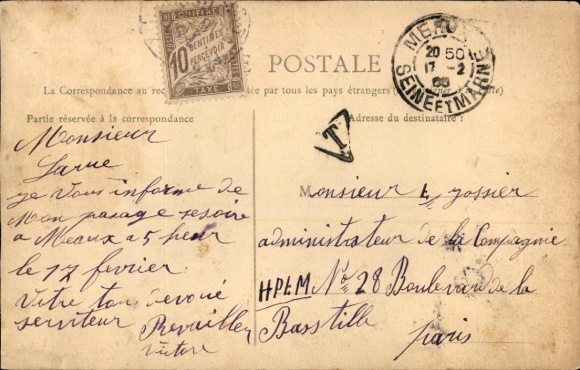 CHIFFRE
10
CENTIMES
A
PERCEVOIR
TAXE
POSTALE
La Correspondance au par tous les pays étrangers
Partie réservée à la correspondance
Adresse du destinataire :
20 50
17 - 2
SEINE ET MARNE
T
Monsieur
Larue
je vous informe de
Mon pasage sesoire
a Meaux a 5 heur
le 17 fevrier
Votre tou devoué
serviteur Revailler
Victore
Monsieur L. Jossier
administrateur de la Compagnie
HPLM No 28 Boulevar de la
Basstille
paris